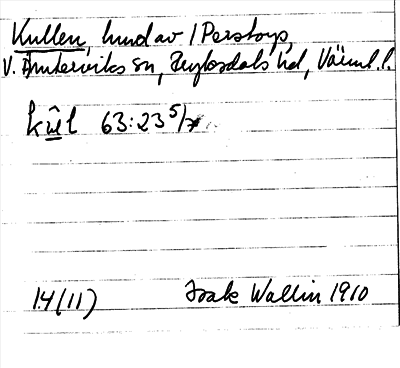 Kullen, hmd av 1 Perstorp,
V. Ämterviks sn, Fryksdals hd, Värml. l.
kûl 63:23 5/7
14(11) Isak Wallin 1910